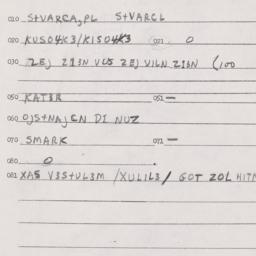 010 S+VARCA,PL S+VARCL
020 KUSO4K3/KISO4K3 021 0
030 2EJ 213N VUS 2EJ VILN 213N (100
050 KAT3R 051 —
060 OJS+NAJCN DI NUZ
070 SMARK 071 —
080 0 .
081 XAS V3S+UL3M /XULIL3/ GOT ZOL HITN